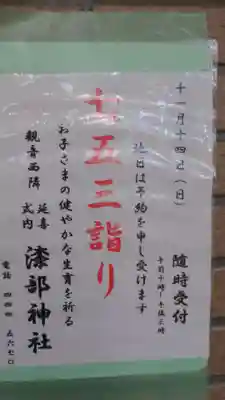 十一月十四日(日)
随時受付
午前十時~午後三時
他日は予約を申し受けます
七五三詣り
お子さまの健やかな生育を祈る
観音西隣
延喜
式内
漆部神社
電話 四四四 五六七〇